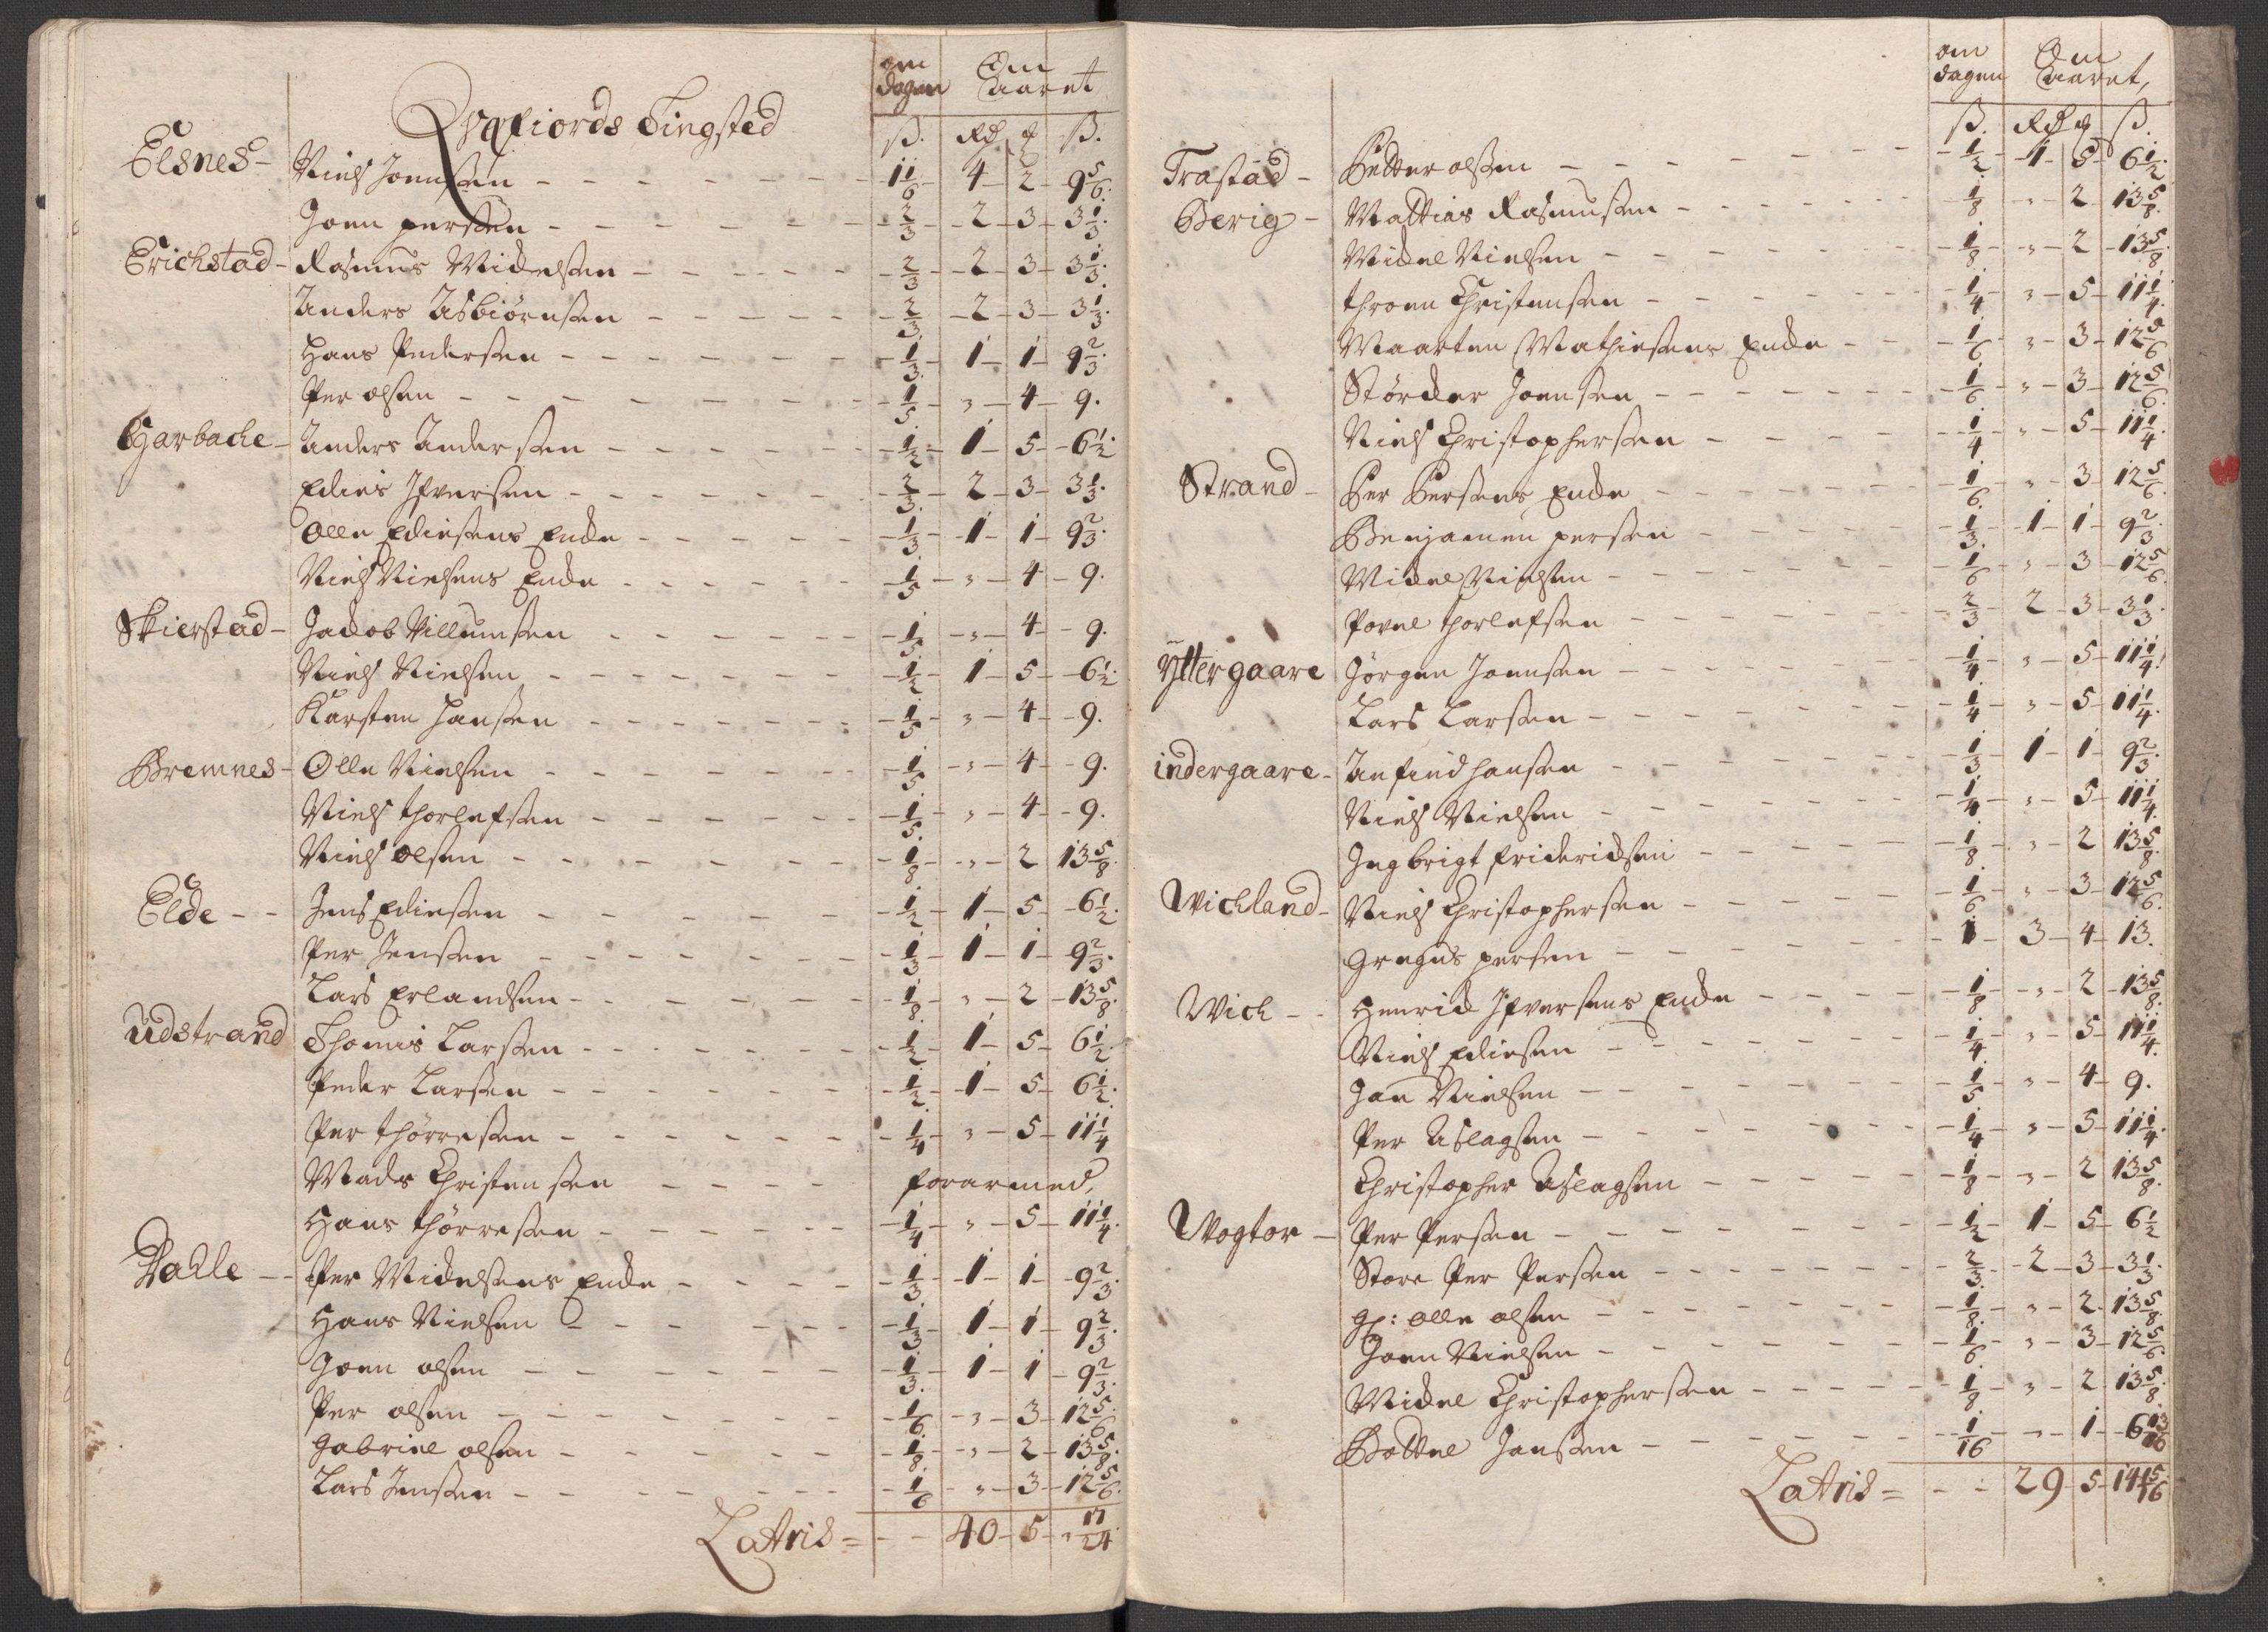 om dagen Om Aaret
Qvæfiords Tingsted
ß. Rd ℔ ß.
Elsnes - Niels Joensen - 1 1/6 - 4 - 2 - 9 5/6.
Joen persen - 2/3 - 2 - 3 - 3 1/3.
Erichstad - Rasmus Michelsen - 2/3 - 2 - 3 - 3 1/3.
Anders Asbiørnsen - 2/3 - 2 - 3 - 3 1/3.
Hans Pedersen - 1/3 - 1 - 1 - 9 2/3.
Per olsen - 1/5 - " - 4 - 9.
Garbache - Anders Andersen - 1/2 - 1 - 5 - 6 1/2.
Edies Ifversen - 2/3 - 2 - 3 - 3 1/3.
Olle Ediesens Encke - 1/3 - 1 - 1 - 9 2/3.
Niels Nielsens Encke - 1/5 - " - 4 - 9.
Skierstad - Jacob Villumsen - 1/5 - " - 4 - 9.
Niels Nielsen - 1/2 - 1 - 5 - 6 1/2.
Karsten Hansen - 1/5 - " - 4 - 9.
Bremnes - Olle Nielsen - 1/5 - " - 4 - 9.
Niels thorlefsen - 1/5 - " - 4 - 9.
Niels Olsen - 1/8 - " - 2 13 5/8.
Elde - Jens Ediesen - 1/2 - 1 - 5 - 6 1/2.
Per Jensen - 1/3 - 1 - 1 - 9 2/3.
Lars Erlandsen - 1/8 - " - 2 - 13 5/8.
Udstrand Thomis Larsen - 1/2 - 1 - 5 - 6 1/2.
Peder Larsen - 1/2 - 1 - 5 - 6 1/2.
Per thørresen - 1/4 - " - 5 - 11 1/4
Mads Christensen - forarmed,
Hans thørresen - 1/4 - " - 5 - 11 1/4.
Dahle - Per Michelsens Encke - 1/3 - 1 - 1 - 9 2/3.
Hans Nielsen - 1/3 - 1 - 1 - 9 2/3.
Joen olsen - 1/3 - 1 - 1 - 9 2/3.
Per olsen - 1/6 - " - 3 - 12 5/6.
Gabriel olsen - 1/8 - " - 2 - 13 5/8.
Lars Jensen - 1/6 - " - 3 - 12 5/6.
Latris = - - 40 - 5 - " 17/24
om dagen Om Aaret,
ß. Rd ℔ ß.
Trastad - Petter olsen - 1/2 - 1 - 5 - 6 1/2.
Berig - Mattias Rasmussen - 1/8 - " - 2 13 5/8.
Michel Nielsen - 1/8 - " - 2 - 13 5/8.
throen Christensen - 1/4 - " - 5 - 11 1/4.
Maarten Mathiesens Encke - 1/6 - " - 3 - 12 5/6
Størcker Joensen - 1/6 - " - 3 - 12 5/6.
Niels Christophersen - 1/4 - " - 5 - 11 1/4.
Strand - Per Persens Encke - 1/6 - " - 3 12 5/6.
Benjamen persen - 1/3 - 1 - 1 - 9 2/3.
Michel Nielsen - 1/6 - " - 3 - 12 5/6.
Povel thorlefsen - 2/3 2 - 3 - 3 1/3.
Yttergaare Jørgen Joensen - 1/4 - " - 5 - 11 1/4.
Lars Larsen - 1/4 - " - 5 11 1/4.
indergaare - Anfind hansen - 1/3 - 1 - 1 - 9 2/3.
Niels Nielsen - 1/4 - " - 5 - 11 1/4.
Ingbrigt fridericksen - 1/8 - " - 2 13 5/8.
Wichland - Niels Christophersen - 1/6 - " - 3 - 12 5/6.
Gregus persen - 1 - 3 - 4 - 13.
Wich - Henrick Ifversens Encke - 1/8 - " - 2 - 13 5/8.
Niels Ediesen - 1/4 - " - 5 - 11 1/4.
Jan Nielsen - 1/5 - " - 4 - 9.
Per Aslagsen - 1/4 - " - 5 - 11 1/4.
Christopher Aslagsen - 1/8 - " - 2 13 5/8.
Wogtor - Per Persen - 1/2 - 1 - 5 - 6 1/2
Store Per Persen - 2/3 - 2 - 3 - 3 1/3.
gl: olle olsen - 1/8 - " - 2 - 13 5/8.
Joen Nielsen - 1/6 - " - 3 - 12 5/6.
Michel Christophersen - 1/8 - " - 2 - 13 5/8.
Bottel Jansen - 1/16 - " - 1 - 6 13/16
Latris = - - 29 - 5 - 14 15/16